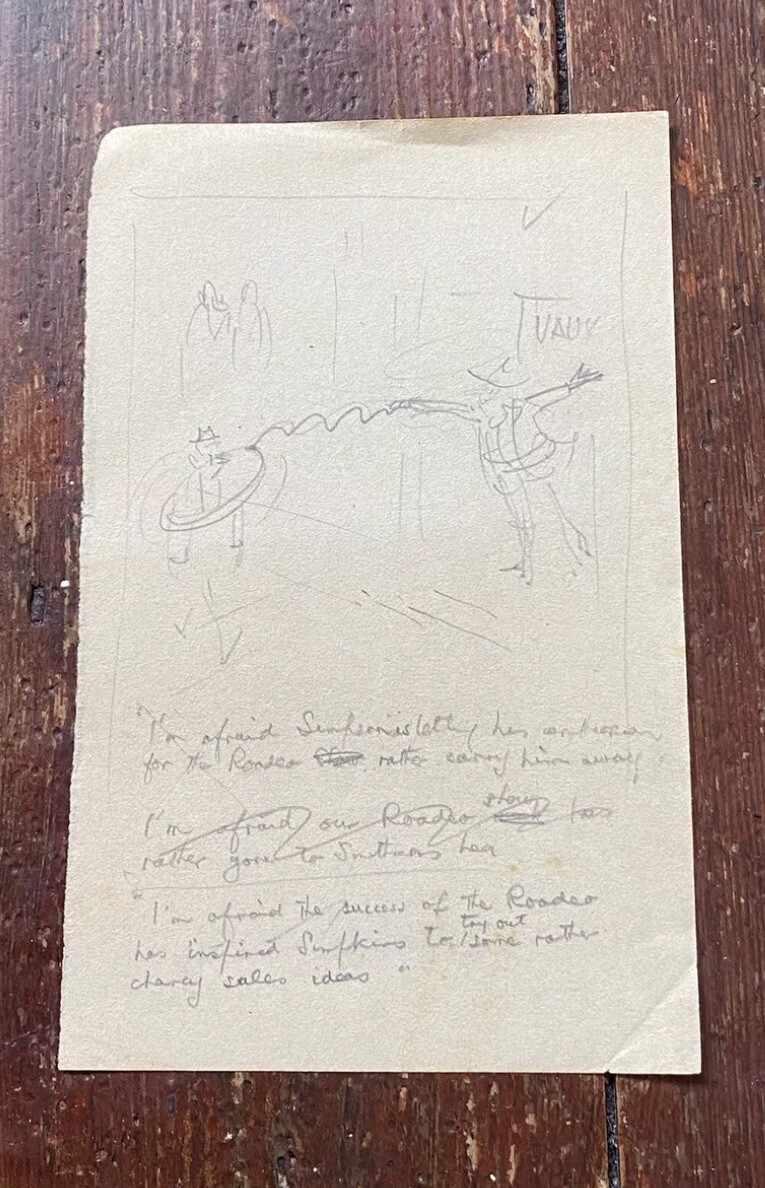 "I'm afraid Simpson is letting his enthusiasm
for the Roadeo rather carry him away.
I'm afraid our Roadeo show has
rather gone to Smithsons hea
"I'm afraid the success of the Roadeo
has inspired Simpkins to try out some rather
chancy sales ideas"